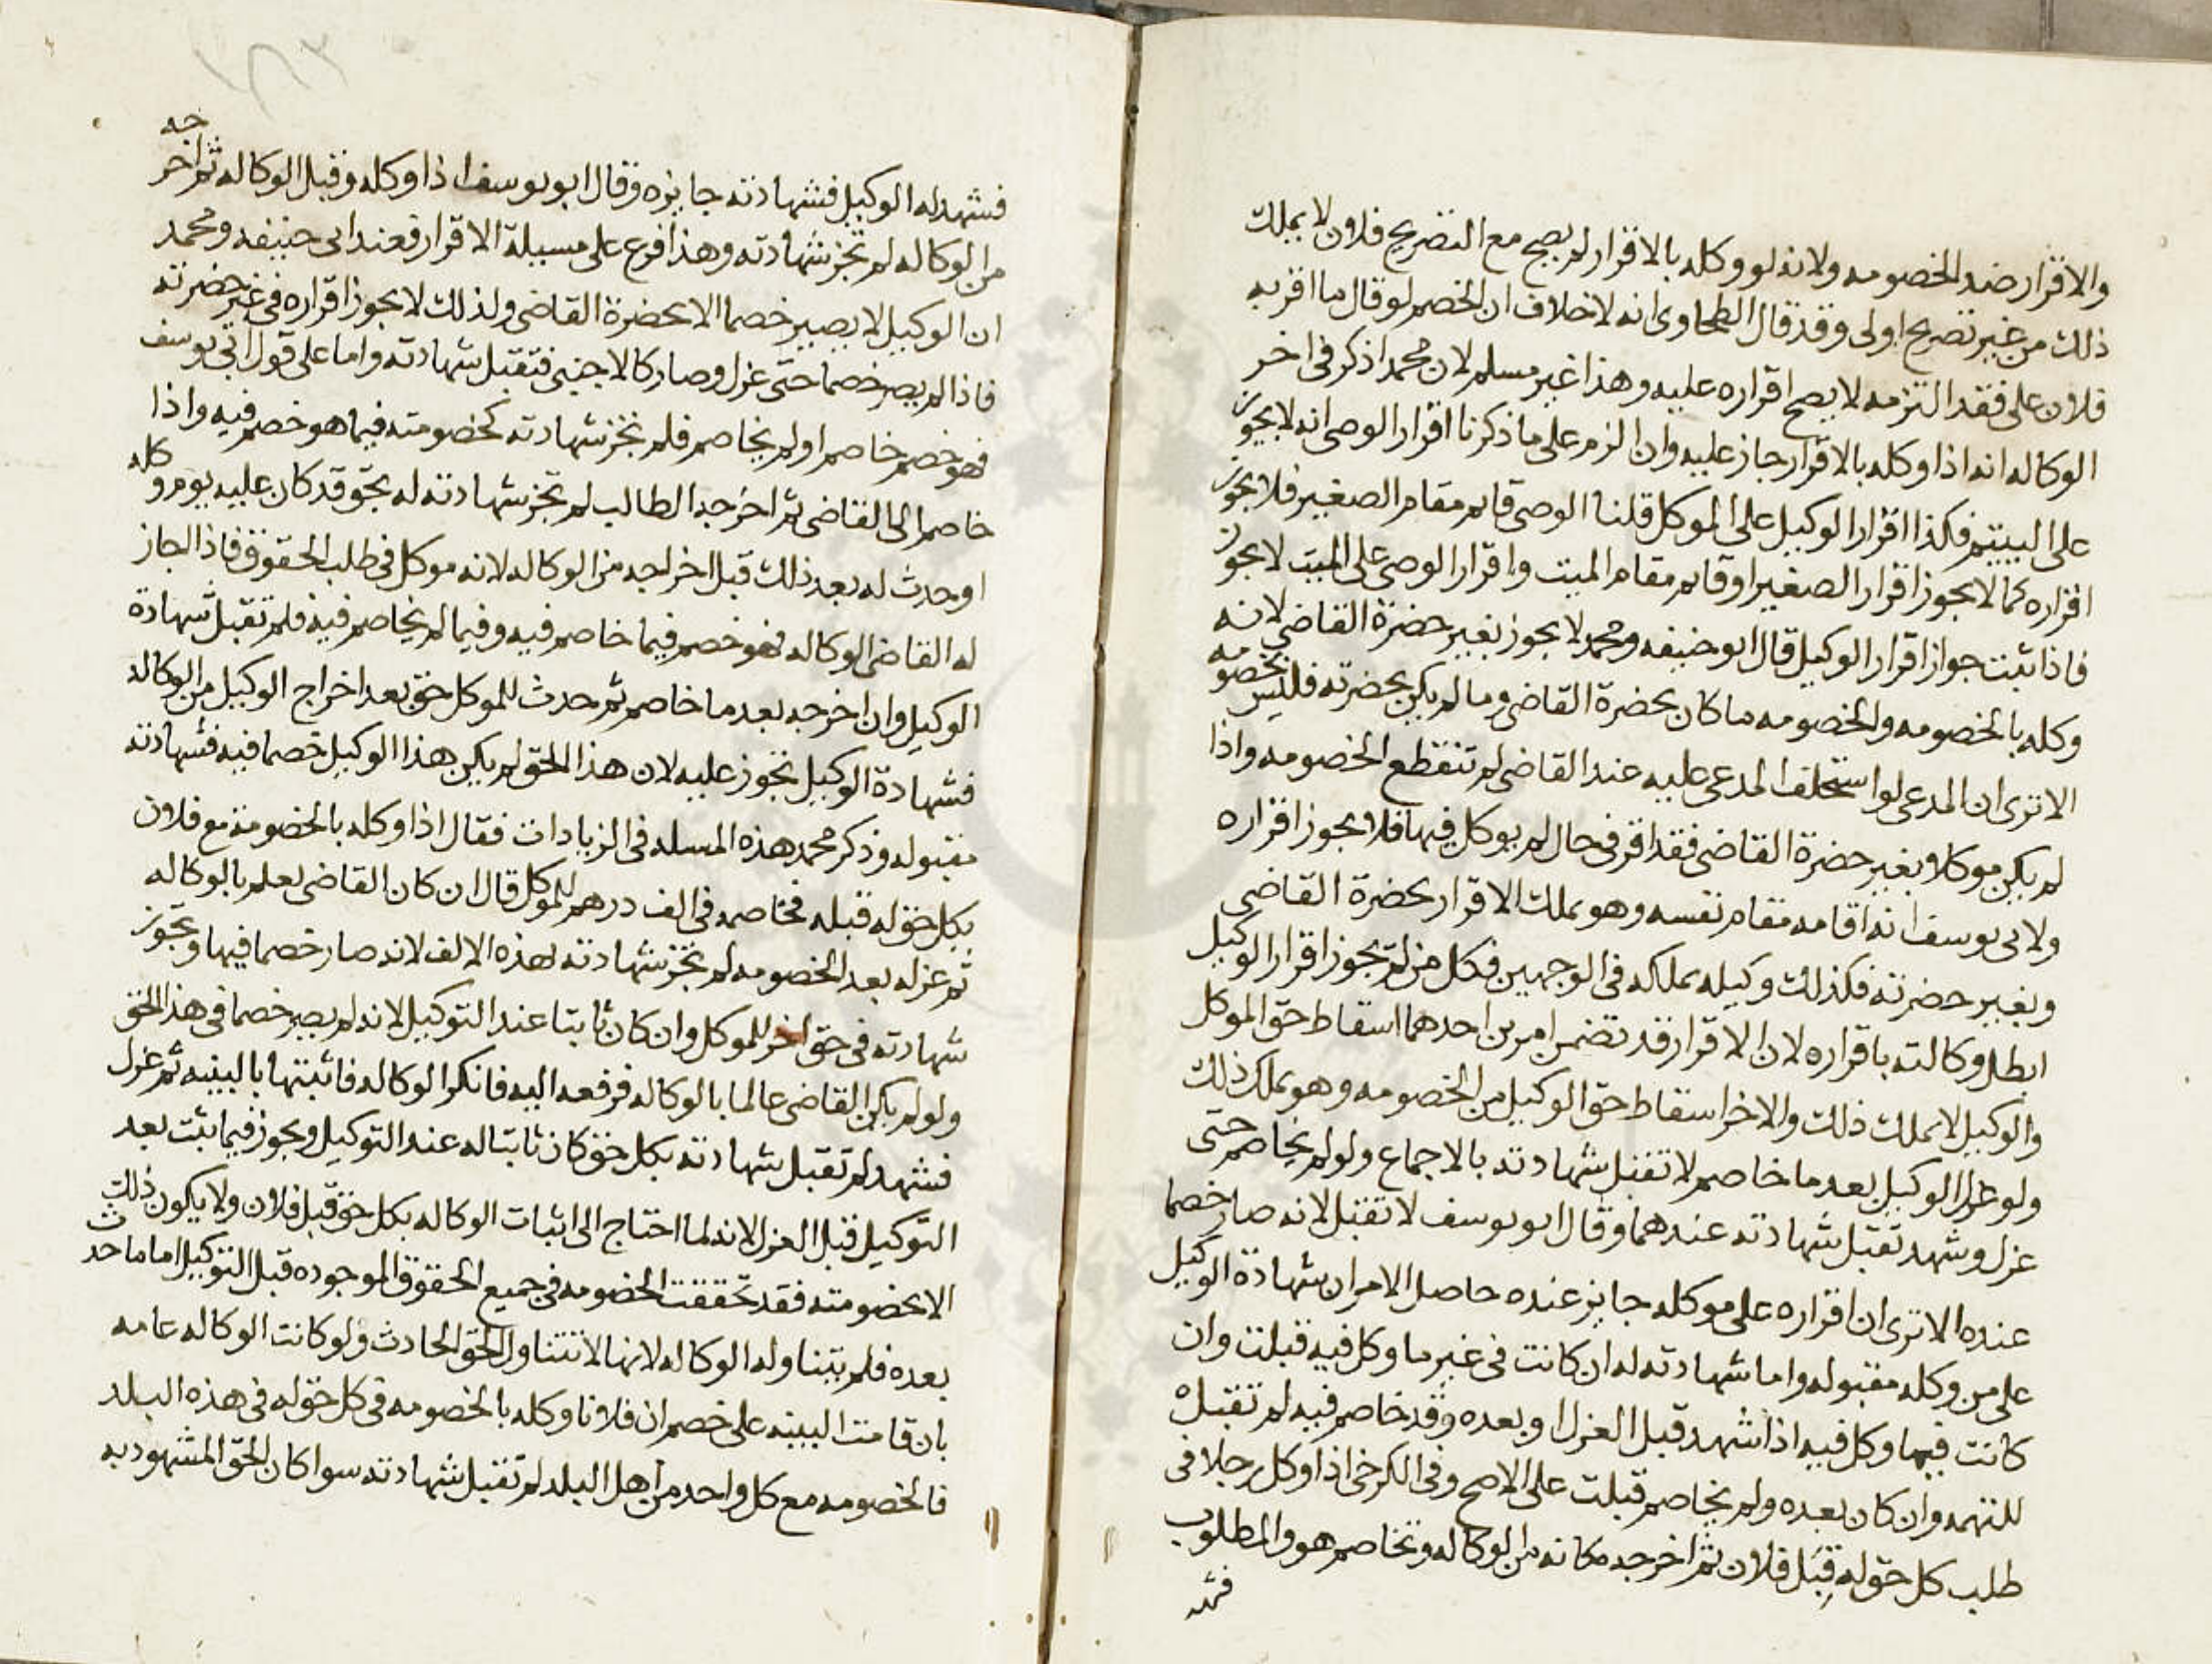 والاقرار ضد الخصومه ولانه لو وكله بالاقرار لم يصح مع التصريح فلان لا يملك
ذلك من غير تصريح اولى وقد قال الطحاوى انه لا خلاف ان الخصم لو قال ما اقر به
فلان على فقد التزمه لا يصح اقراره عليه وهذا غير مسلم لان محمدا ذكر فى اخر
الوكاله انه اذا وكله بالاقرار جاز عليه وان الزم على ما ذكرنا اقرار الوصى انه لا يجوز
على اليتيم فكذا اقرار الوكيل على الموكل قلنا الوصى قايم مقام الصغير فلا يجوز
اقراره كما لا يجوز اقرار الصغير او قايم مقام الميت واقرار الوصى على الميت لا يجوز
فاذا ثبت جواز اقرار الوكيل قال ابو حنيفه ومحمد لا يجوز بغير حضرة القاضى لانه
وكله بالخصومه والخصومه ما كان بحضرة القاضى وما لم يكن بحضرته فليس بخصومه
الا ترى ان المدعى لو استحلف المدعى عليه عند القاضى لم تنقطع الخصومه واذا
لم يكن موكلا بغير حضرة القاضى فقد اقر فى حال لم يوكل فيها فلا يجوز اقراره
ولابى يوسف انه اقامه مقام نفسه وهو يملك الاقرار بحضرة القاضى
وبغير حضرته فكذلك وكيله يملكه فى الوجهين فكل من لم يجوز اقرار الوكيل
ابطل وكالته باقراره لان الاقرار قد تضمن امرين احدهما اسقاط حق الموكل
والوكيل لا يملك ذلك والاخر اسقاط حق الوكيل من الخصومه وهو يملك ذلك
ولو عزل الوكيل بعد ما خاصم لا تقبل شهادته بالاجماع ولو لم يخاصم حتى
عزل وشهد تقبل شهادته عندهما وقال ابو يوسف لا تقبل لانه صار خصما
عنده الا ترى ان اقراره على موكله جايز عنده حاصل الامر ان شهادة الوكيل
على من وكله مقبوله واما شهادته له ان كانت فى غير ما وكل فيه قبلت وان
كانت فيما وكل فيه اذا شهد قبل العزل او بعده وقد خاصم فيه لم تقبل
للتهمه وان كان بعده ولم يخاصم قبلت على الاصح وفى الكرخى اذا وكل رجلا فى
طلب كل حق له قبل فلان ثم اخرجه مكانه من الوكاله وتخاصم هو والمطلوب
فشهد
فشهد له الوكيل فشهادته جايزه وقال ابو يوسف اذا وكله وقبل الوكاله ثم اخرجه
من الوكاله لم تجز شهادته وهذا فرع على مسيلة الاقرار فعند ابى حنيفه ومحمد
ان الوكيل لا يصير خصما الا بحضرة القاضى ولذلك لا يجوز اقراره فى غير حضرته
فاذا لم يصر خصما حتى عزل وصار كالاجنبى فتقبل شهادته واما على قول ابى يوسف
فهو خصم خاصم او لم يخاصم فلم تجز شهادته كخصومته فيما هو خصم فيه واذا
خاصم الى القاضى ثم اخرجه الطالب لم تجز شهادته له بحق قد كان عليه يوم وكله
او حدث له بعد ذلك قبل اخراجه من الوكاله لانه موكل فى طلب الحقوق فاذا اجاز
له القاضى الوكاله فهو خصم فيما خاصم فيه وفيما لم يخاصم فيه فلم تقبل شهادة
الوكيل وان اخرجه بعد ما خاصم ثم حدث للموكل حق بعد اخراج الوكيل من الوكاله
فشهادة الوكيل تجوز عليه لان هذا الحق لم يكن هذا الوكيل خصما فيه فشهادته
مقبوله وذكر محمد هذه المسله فى الزيادات فقال اذا وكله بالخصومة مع فلان
بكل حق له قبله فخاصمه فى الف درهم للموكل قال ان كان القاضى يعلم بالوكاله
ثم عزله بعد الخصومه لم تجز شهادته لهذه الالف لانه صار خصما فيها وتجوز
شهادته فى حق اخر للموكل وان كان ثابتا عند التوكيل لانه لم يصر خصما فى هذا الحق
ولو لم يكن القاضى عالما بالوكاله فرفعه اليه فانكر الوكاله فاثبتها بالبينه ثم عزل
فشهد لم تقبل شهادته بكل حق كان ثابتا له عند التوكيل ويجوز فيما يثبت بعد
التوكيل قبل العزل لانه لما احتاج الى اثبات الوكاله بكل حق قبل فلان ولا يكون ذلك
الا بخصومته فقد تحققت الخصومه فى جميع الحقوق الموجوده قبل التوكيل اما ما حدث
بعده فلم يتناوله الوكاله لانها لا تتناول الحق الحادث ولو كانت الوكاله عامه
بان قامت البينه على خصم ان فلانا وكله بالخصومه فى كل حق له فى هذه البلد
فالخصومه مع كل واحد من اهل البلد لم تقبل شهادته سوا كان الحق المشهود به